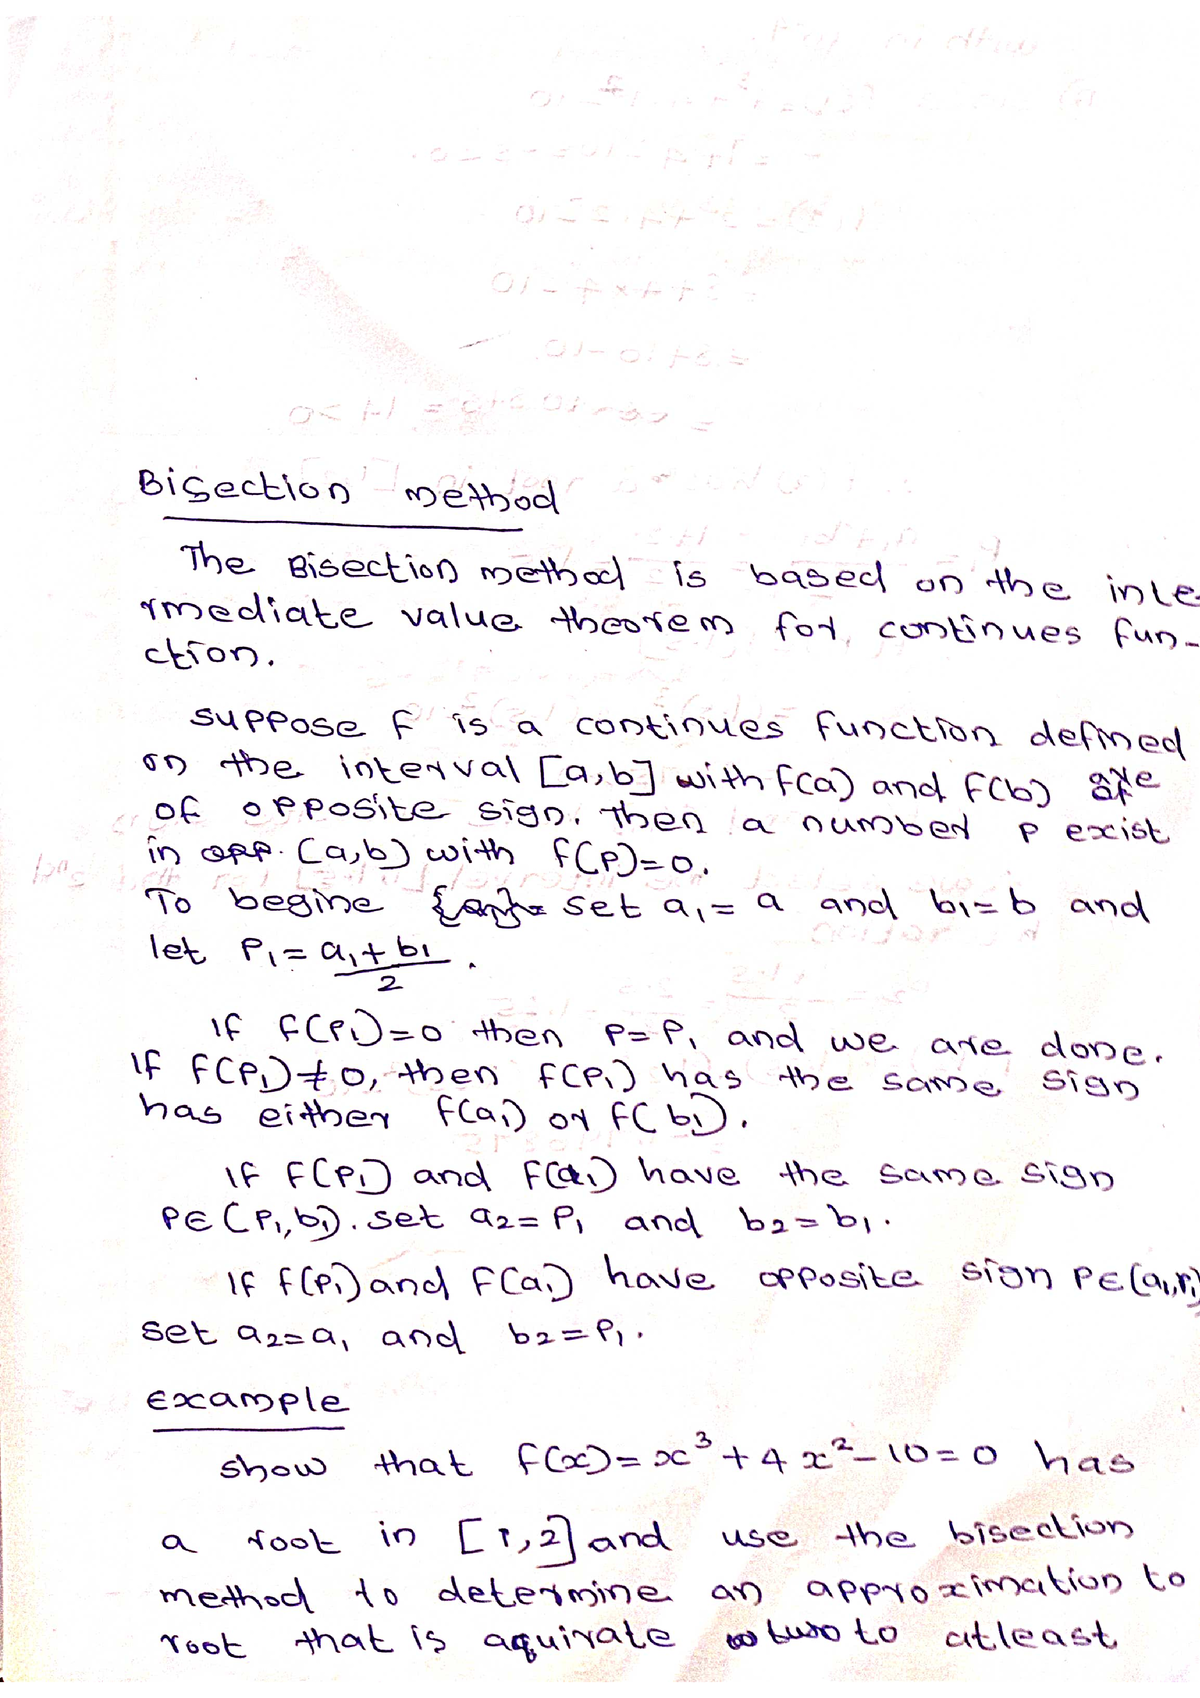 Bisection method
The Bisection method is based on the inte
rmediate value theorem for continues fun-
ction.
suppose f is a continues function defined
on the interval [a,b] with f(a) and f(b) are
of opposite sign. Then a number p excist
in (a,b) with f(p)=0.
To begine set a₁= a and b₁=b and
let P₁= a₁+b₁
2 .
If f(P₁)=0 then P=P₁ and we are done.
If f(P₁)≠0, then f(P₁) has the same sign
has either f(a₁) or f(b₁).
If f(P₁) and f(a₁) have the same sign
P∈(P₁,b₁). set a₂=P₁ and b₂=b₁.
If f(P₁) and f(a₁) have opposite sign P∈(a₁,P₁)
set a₂=a₁ and b₂=P₁.
Example
show that f(x)= x³+4x²-10=0 has
a root in [1,2] and use the bisection
method to determine an approximation to
root that is aquirate to atleast